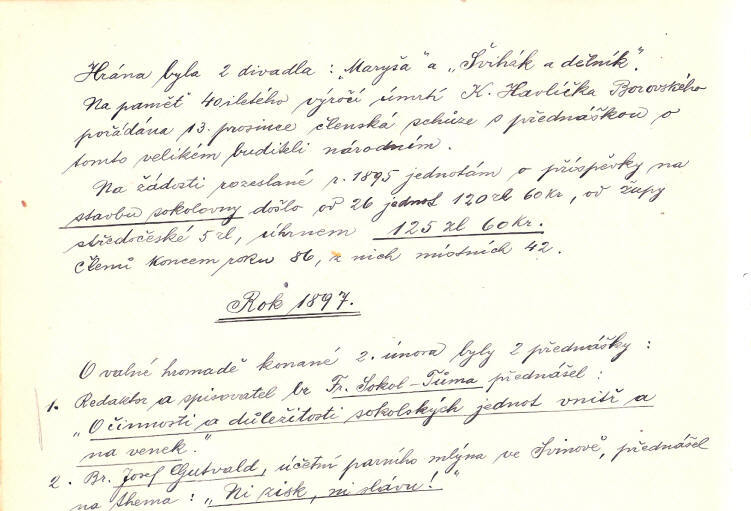 Hrána byla 2 divadla: „Maryša" a „Švihák a dětník".
Na pamět 40iletého výročí úmrtí K. Havlíčka Borovského
pořádána 13. prosince členská schůze s přednáškou o
tomto velikém buditeli národním.
Na žádosti rozeslané r. 1895 jednotám o příspěvky na
stavbu sokolovny došlo od 26 jednot 120 zl 60 Kr, od župy
středočeské 5 zl, úhrnem 125 zl 60 Kr.
Členů koncem roku 86, z nich místních 42.
Rok 1897.
O valné hromadě konané 2. února byly 2 přednášky:
1. Redaktor a spisovatel br Fr. Sokol-Tůma přednášel:
„O činnosti a důležitosti sokolských jednot vnitř a
na venek."
2. Br. Josef Gutvald, účetní parního mlýna ve Svinově, přednášel
na thema: „Ni zisk, ni slávu!"